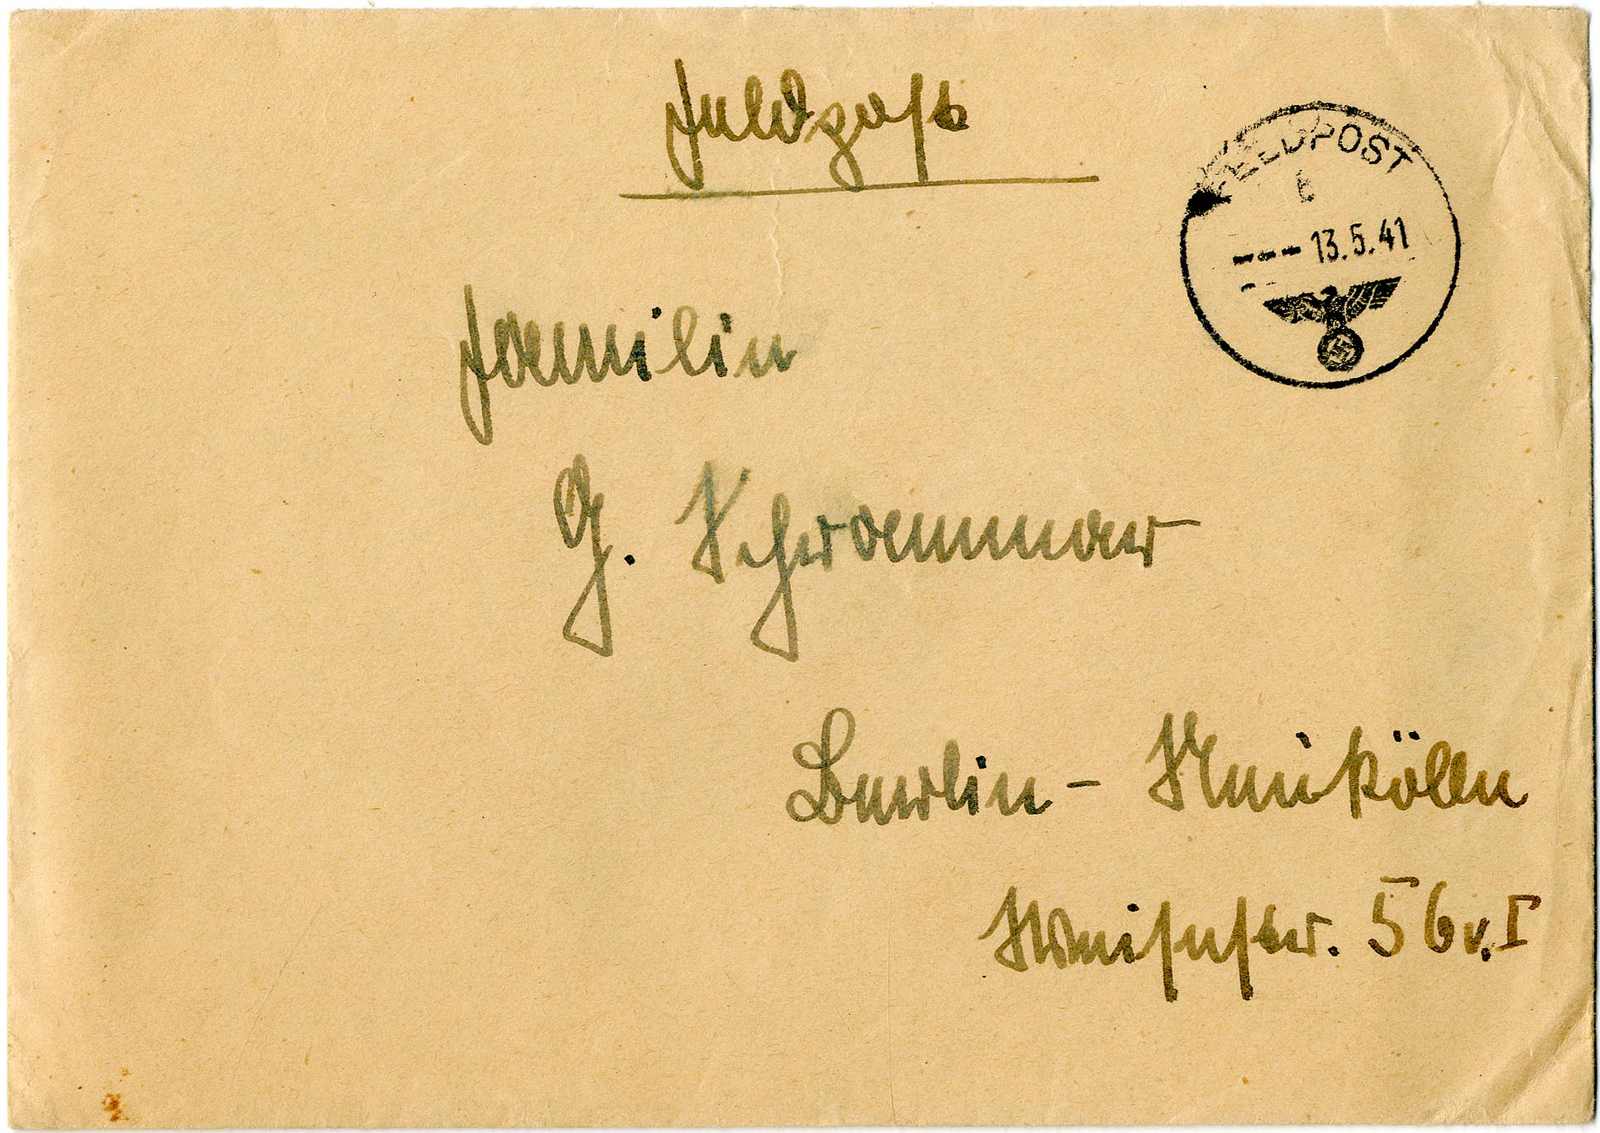 Feldpost
FELDPOST
b
--- 13.5.41
Familie
G. Schrammar
Berlin - Neukölln
Weisestr. 56 v. I